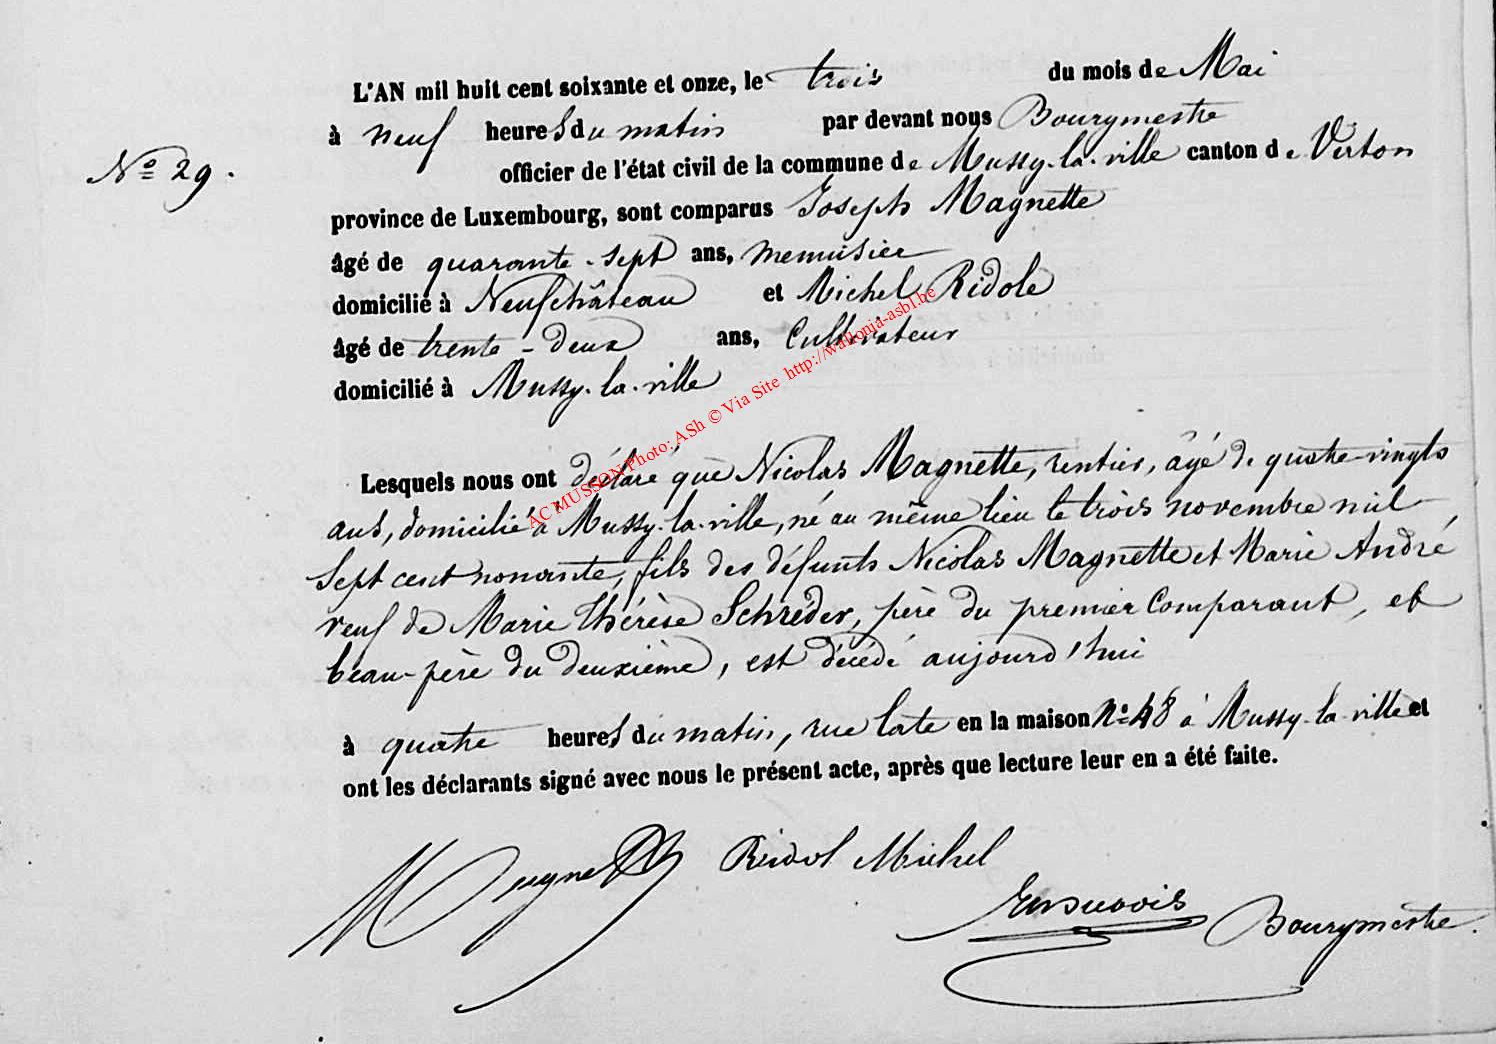 L'AN mil huit cent soixante et onze, le trois du mois de Mai
à neuf heures du matin par devant nous Bourgmestre
N° 29.
officier de l'état civil de la commune de Mussy-la-ville canton de Virton
province de Luxembourg, sont comparus Joseph Magnette
âgé de quarante-sept ans, menuisier
domicilié à Neufchâteau et Michel Ridole
âgé de trente-deux ans, Cultivateur
domicilié à Mussy-la-ville
AC MUSSON Photo: ASh © Via Site http://wallonia-asbl.be
Lesquels nous ont déclaré que Nicolas Magnette, rentier, âgé de quatre-vingts
ans, domicilié à Mussy-la-ville, né au même lieu le trois novembre mil
Sept cent nonante, fils des défunts Nicolas Magnette et Marie André
veuf de Marie Thérèse Schréder, père du premier Comparant, et
beau-père du deuxième, est décédé aujourd'hui
à quatre heures du matin, rue late en la maison N° 48 à Mussy-la-ville et
ont les déclarants signé avec nous le présent acte, après que lecture leur en a été faite.
Magnette Ridol Michel
Bourgmestre.